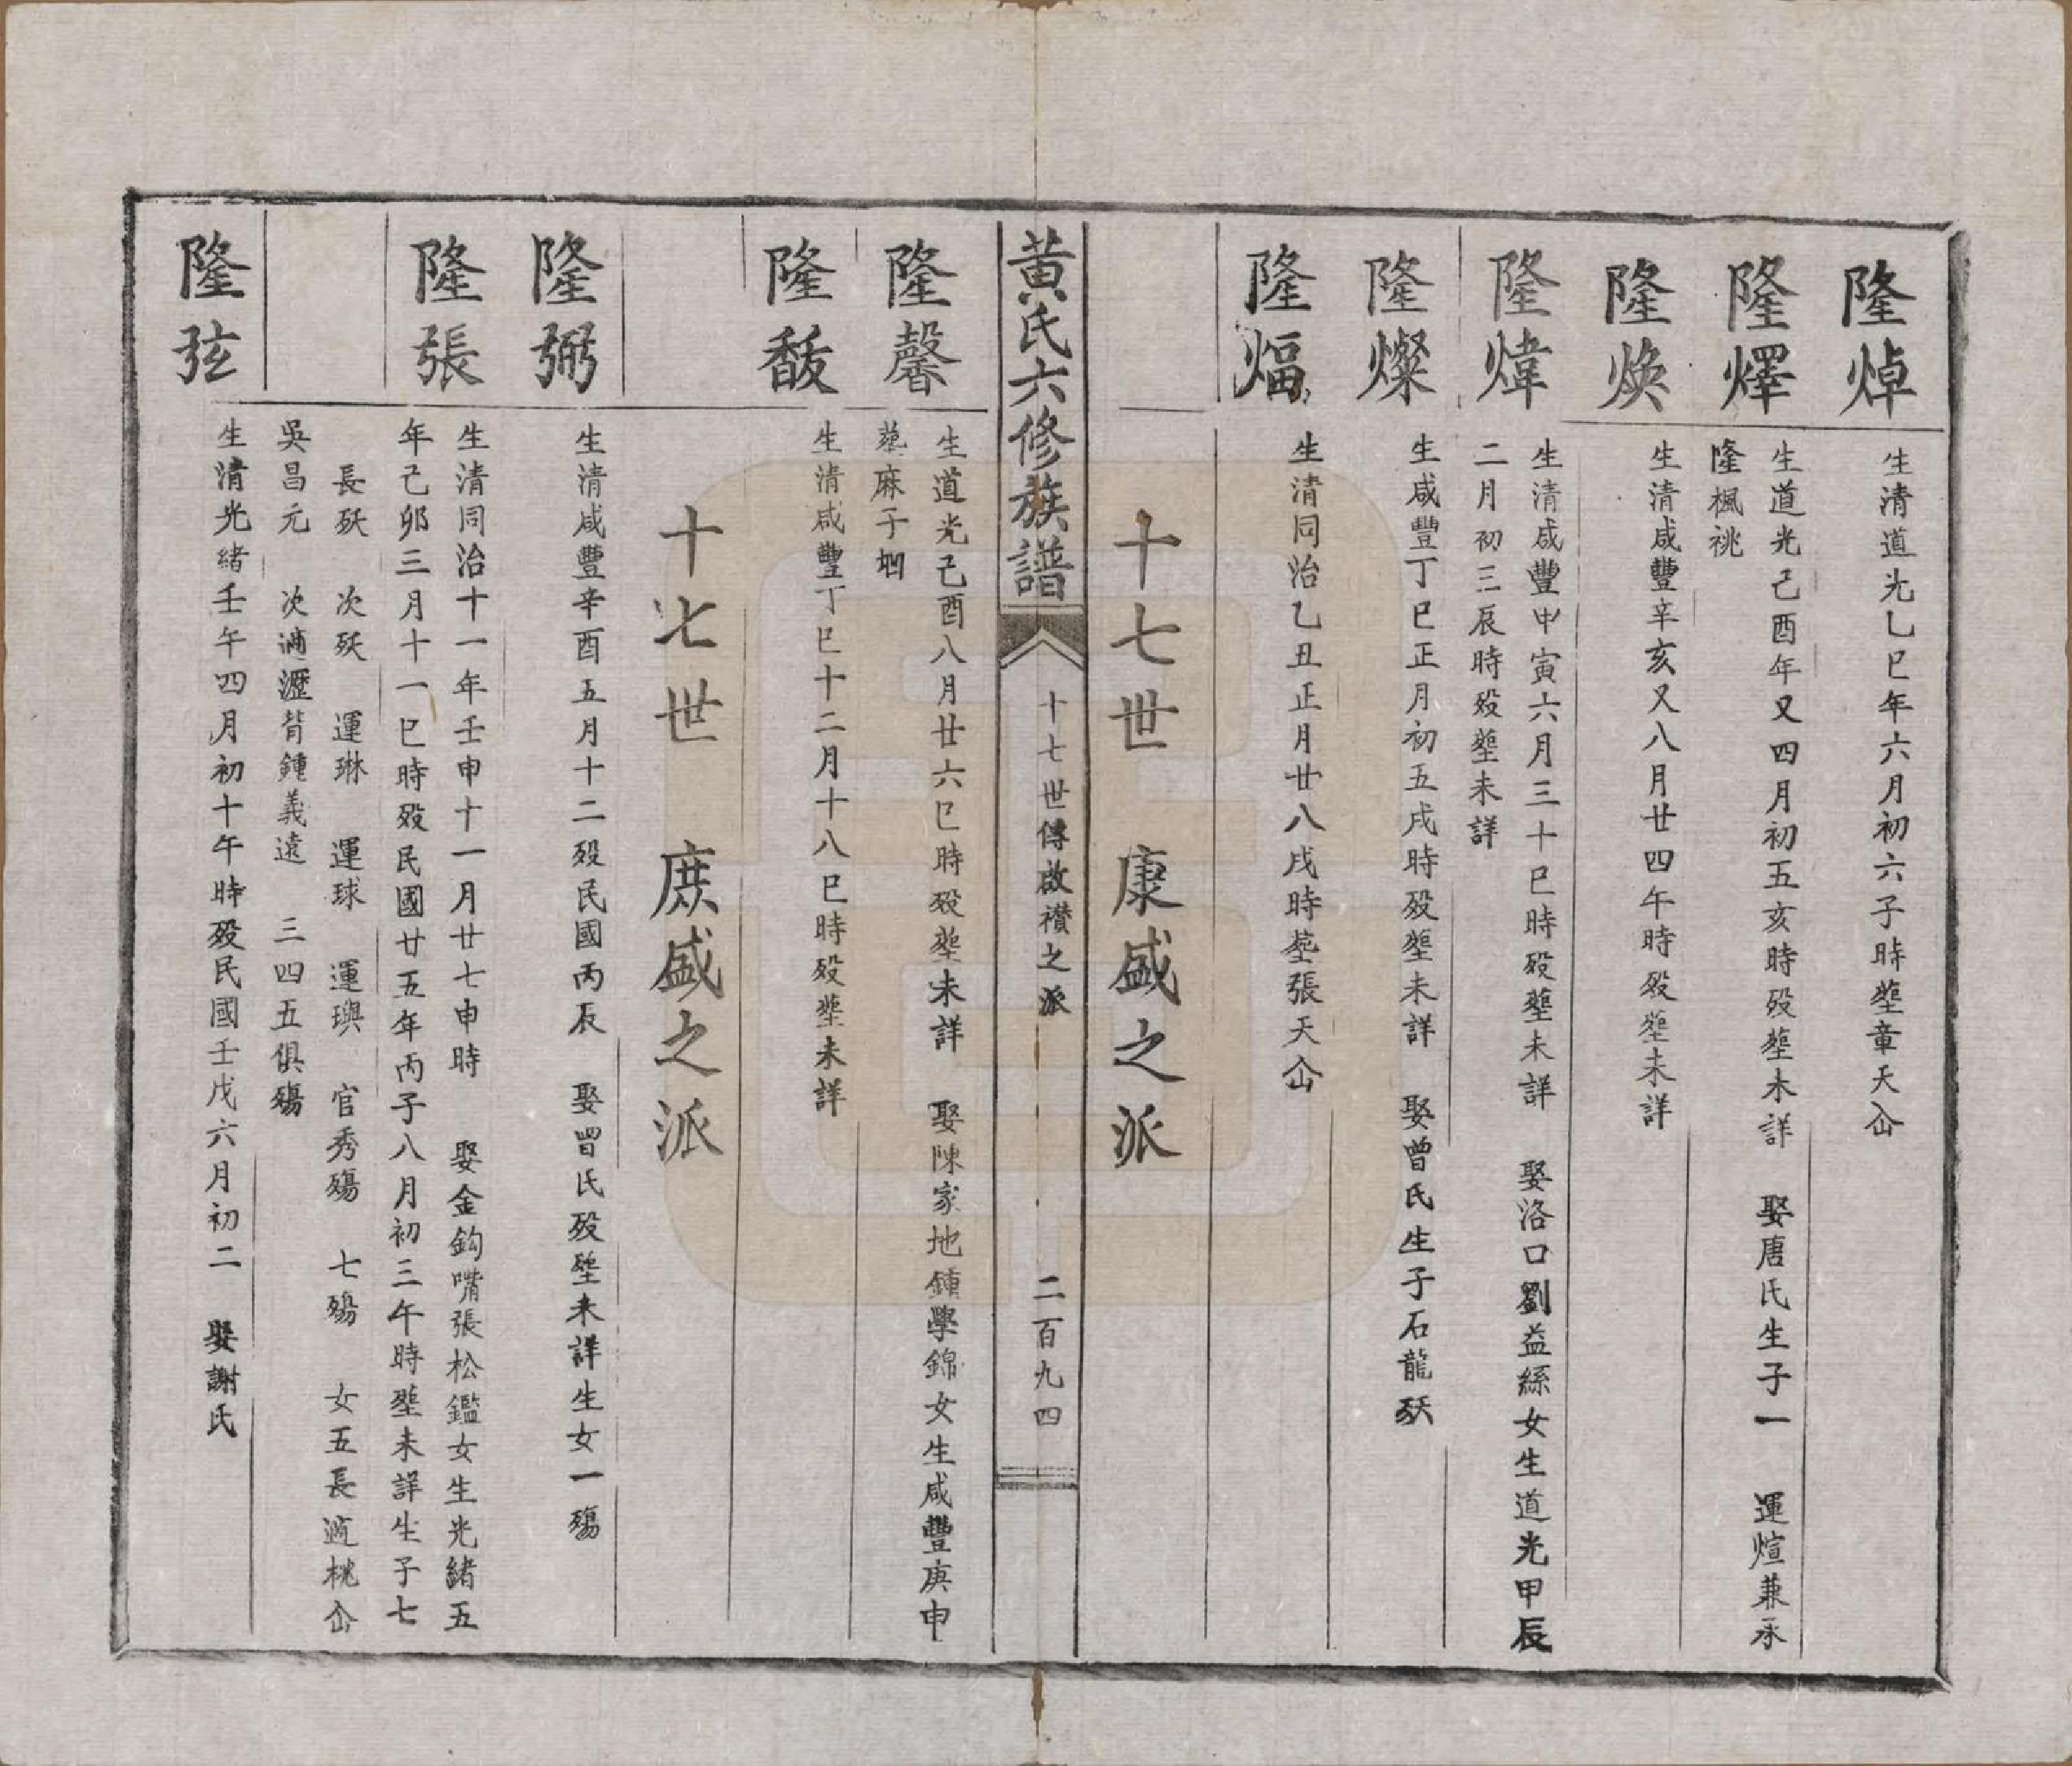 隆焯
生清道光乙巳年六月初六子時塟章天仚
隆燡
生道光己酉年又四月初五亥時殁塟未詳　娶唐氏生子一　運煊兼承
隆楓祧
隆煥
生清咸豐辛亥又八月廿四午時殁塟未詳
隆煒
生清咸豐甲寅六月三十巳時殁塟未詳　娶洛口劉益絲女生道光甲辰
二月初三辰時殁塟未詳
隆燦
生咸豐丁巳正月初五戌時殁塟未詳　娶曾氏生子石龍殀
隆煏
生清同治乙丑正月廿八戌時塟張天仚
十七世　康盛之派
黃氏六修族譜
十七世傳啟禶之派
二百九四
隆馨
生道光己酉八月廿六巳時殁塟未詳　娶陳家地鍾學錦女生咸豐庚申
塟麻子堌
隆馥
生清咸豐丁巳十二月十八巳時殁塟未詳
十七世　庶盛之派
隆弼
生清咸豐辛酉五月十二殁民國丙辰　娶曾氏殁塟未詳生女一殤
隆張
生清同治十一年壬申十一月廿七申時　娶金鈎嘴張松鑑女生光緒五
年己卯三月十一巳時殁民國廿五年丙子八月初三午時塟未詳生子七
長殀　次殀　運琳　運球　運璵　官秀殤　七殤　女五長適桃仚
吳昌元　次適瀝背鍾義遠　三四五俱殤
隆弦
生清光緒壬午四月初十午時殁民國壬戌六月初二　娶謝氏